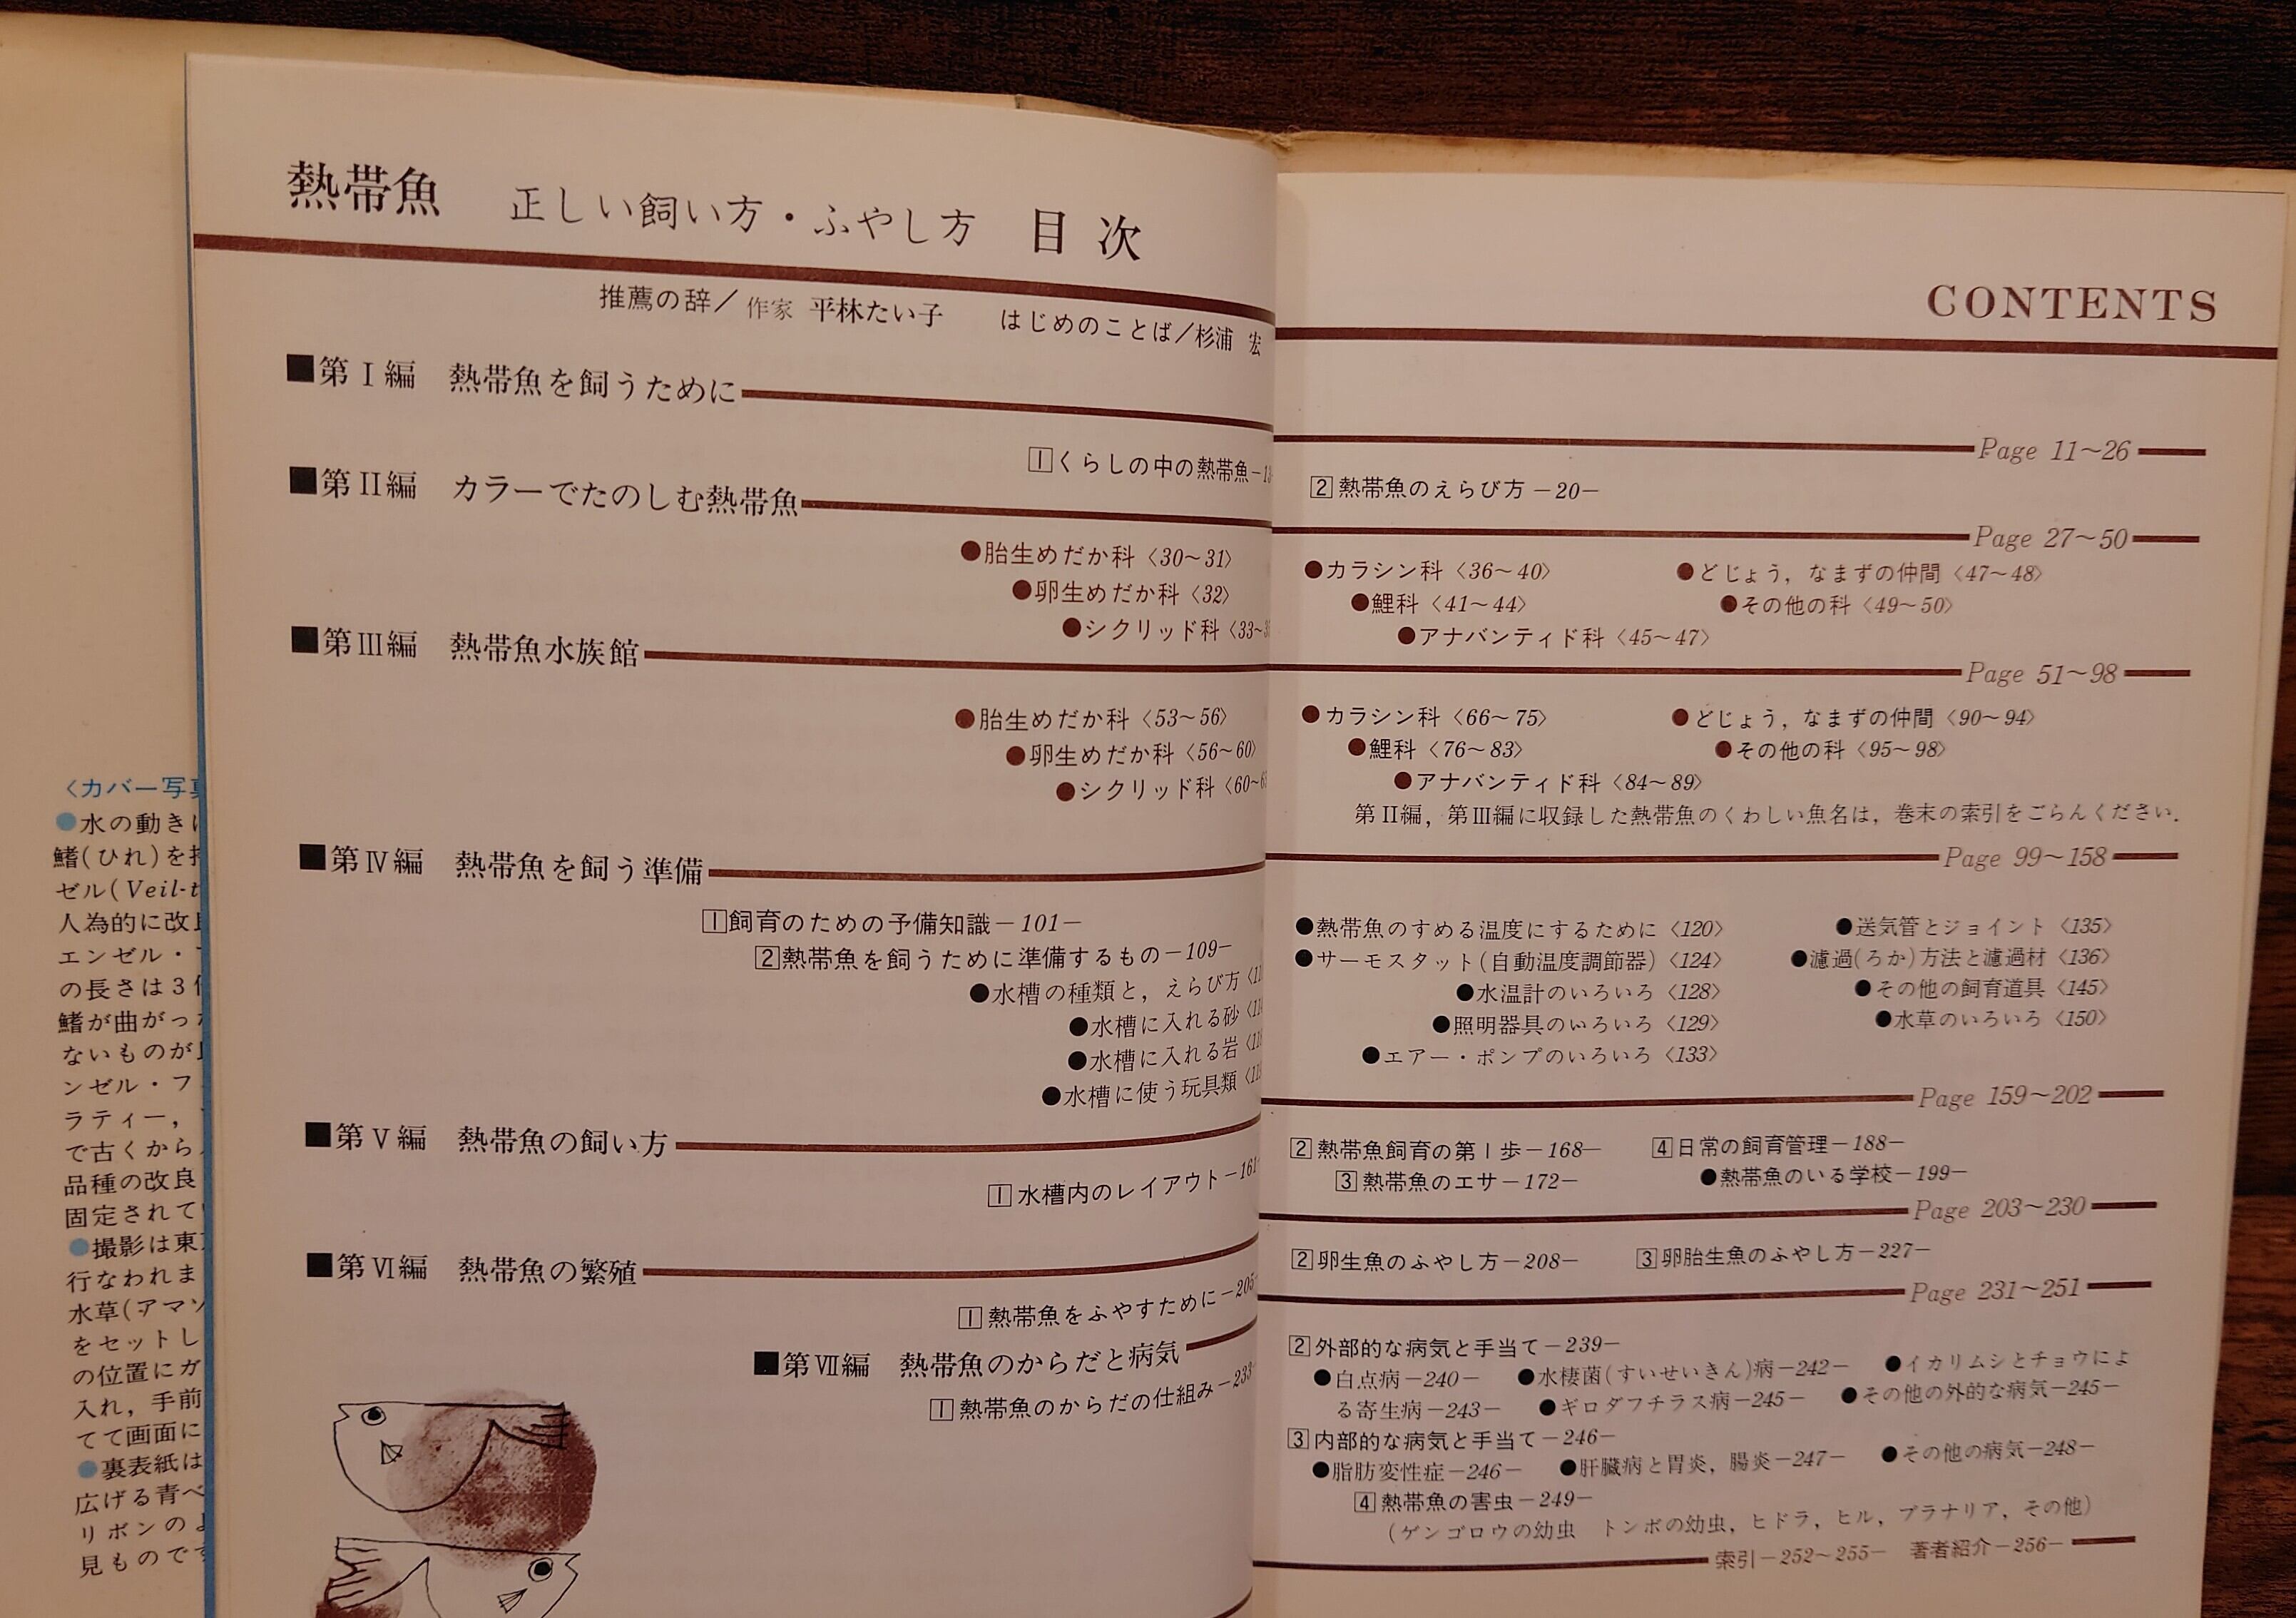 熱帯魚 正しい飼い方・ふやし方 目次
CONTENTS
推薦の辞／作家 平林たい子 はじめのことば／杉浦 宏
■第Ⅰ編 熱帯魚を飼うために
Page 11～26
1くらしの中の熱帯魚
2 熱帯魚のえらび方－20－
■第Ⅱ編 カラーでたのしむ熱帯魚
Page 27～50
●胎生めだか科〈30～31〉
●卵生めだか科〈32〉
●シクリッド科〈33～
●カラシン科〈36～40〉
●鯉科〈41～44〉
●アナバンティド科〈45～47〉
●どじょう，なまずの仲間〈47～48〉
●その他の科〈49～50〉
■第Ⅲ編 熱帯魚水族館
Page 51～98
●胎生めだか科〈53～56〉
●卵生めだか科〈56～60〉
●シクリッド科〈60～
●カラシン科〈66～75〉
●鯉科〈76～83〉
●アナバンティド科〈84～89〉
●どじょう，なまずの仲間〈90～94〉
●その他の科〈95～98〉
第Ⅱ編，第Ⅲ編に収録した熱帯魚のくわしい魚名は，巻末の索引をごらんください．
■第Ⅳ編 熱帯魚を飼う準備
Page 99～158
1飼育のための予備知識－101－
2熱帯魚を飼うために準備するもの－109－
●水槽の種類と，えらび方
●水槽に入れる砂
●水槽に入れる岩
●水槽に使う玩具類
●熱帯魚のすめる温度にするために〈120〉
●サーモスタット(自動温度調節器)〈124〉
●水温計のいろいろ〈128〉
●照明器具のいろいろ〈129〉
●エアー・ポンプのいろいろ〈133〉
●送気管とジョイント〈135〉
●濾過(ろか)方法と濾過材〈136〉
●その他の飼育道具〈145〉
●水草のいろいろ〈150〉
■第Ⅴ編 熱帯魚の飼い方
Page 159～202
1 水槽内のレイアウト－161
2 熱帯魚飼育の第１歩－168－
3 熱帯魚のエサ－172－
4日常の飼育管理－188－
●熱帯魚のいる学校－199－
■第Ⅵ編 熱帯魚の繁殖
Page 203～230
1 熱帯魚をふやすために－205
2 卵生魚のふやし方－208－
3 卵胎生魚のふやし方－227－
■第Ⅶ編 熱帯魚のからだと病気
Page 231～251
1 熱帯魚のからだの仕組み－233
2 外部的な病気と手当て－239－
●白点病－240－ ●水棲菌(すいせいきん)病－242－ ●イカリムシとチョウによ
る寄生病－243－ ●ギロダフチラス病－245－ ●その他の外的な病気－245－
3 内部的な病気と手当て－246－
●脂肪変性症－246－ ●肝臓病と胃炎，腸炎－247－ ●その他の病気－248－
4 熱帯魚の害虫－249－
(ゲンゴロウの幼虫 トンボの幼虫，ヒドラ，ヒル，プラナリア，その他)
索引－252～255－ 著者紹介－256－
〈カバー写
●水の動き
鰭(ひれ)を
ゼル(Veil-t
人為的に改
エンゼル・
の長さは3
鰭が曲がっ
ないものが
ンゼル・フ
ラティー，
で古くから
品種の改良
固定されて
●撮影は東
行なわれま
水草(アマ
をセットし
の位置にガ
入れ，手前
てて画面に
●裏表紙は
広げる青ベ
リボンの
見ものです